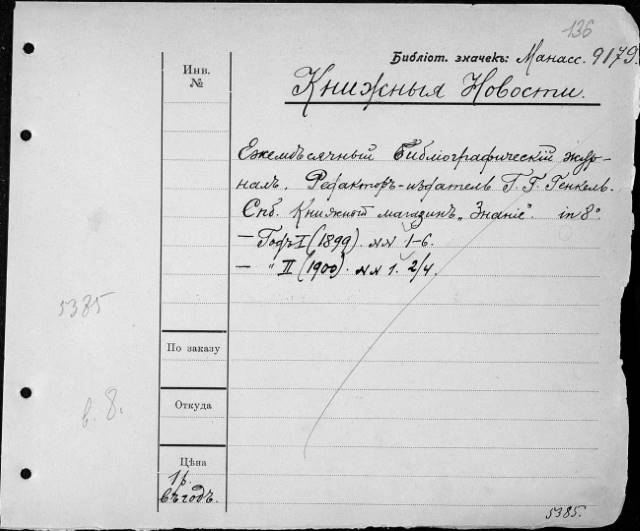 136
Библіот. значекъ: Манасс. 9179.
Инв.
№
Книжныя Новости.
Ежемѣсячный Библіографическій жур-
налъ. Редакторъ-издатель Г. Г. Генкель.
Спб. Книжной магазинъ „Знаніе". in 8°.
— Годъ I (1899). №№ 1-6.
— " II (1900). №№ 1. 2/4.
5385
По заказу
в. 8.
Откуда
Цѣна
1 р.
въ годъ.
5385.